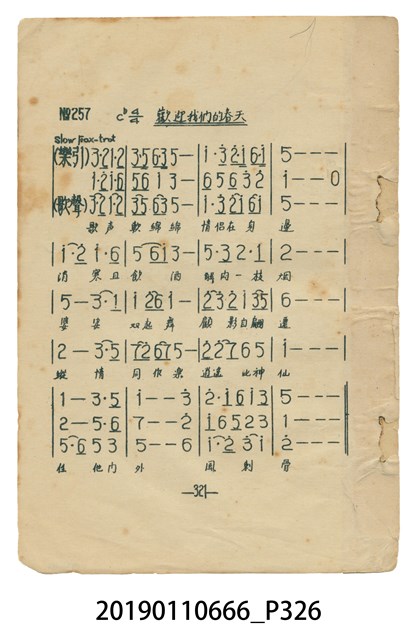 No 257 C♭ 4/4 歡迎我們的春天
slow fox-trot
(樂引) 3·2 1·2 3·5 6 3 5 — i·3 2 i 6 i 5 — — —
1·2 1 6 5 6 1 3 — 6 5 6 3 2 i — — 0
(歌聲) 3·2 1·2 3 5 6 3 5 — i·3 2 i 6 i 5 — — —
歌 声 軟 綿 綿 情 侣 在 身 邊
i·2 i·6 5 6 i 3 — 5·3 2·i 2 — — —
消 寒 且 飲 酒 一 枝 烟
5 — 3·1 i 2 6 i — 2 3 2 i 3 5 6 — — —
婆 娑 双 起 舞 顧 影 自 翩
2 — 3·5 7 2 6 7 5 — 2 2 7 6 5 i — — —
縱 情 同 作 樂 逍 遙 比 神 仙
1 — 3·5 i — — 3 2·i 6 i 3 5 — — —
2 — 5·6 7 — — 2 i 6 5 2 3 1 — — —
5·6 5 3 5 — — 6 i·2 3 i 2 — — —
任 他 内 外 風 刺 骨
—321—
20190110666_P326